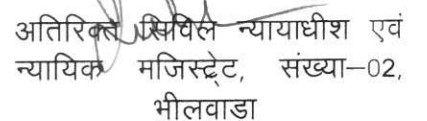 अतिरिक्त सिविल न्यायाधीश एवं
न्यायिक मजिस्ट्रेट, संख्या–02,
भीलवाडा